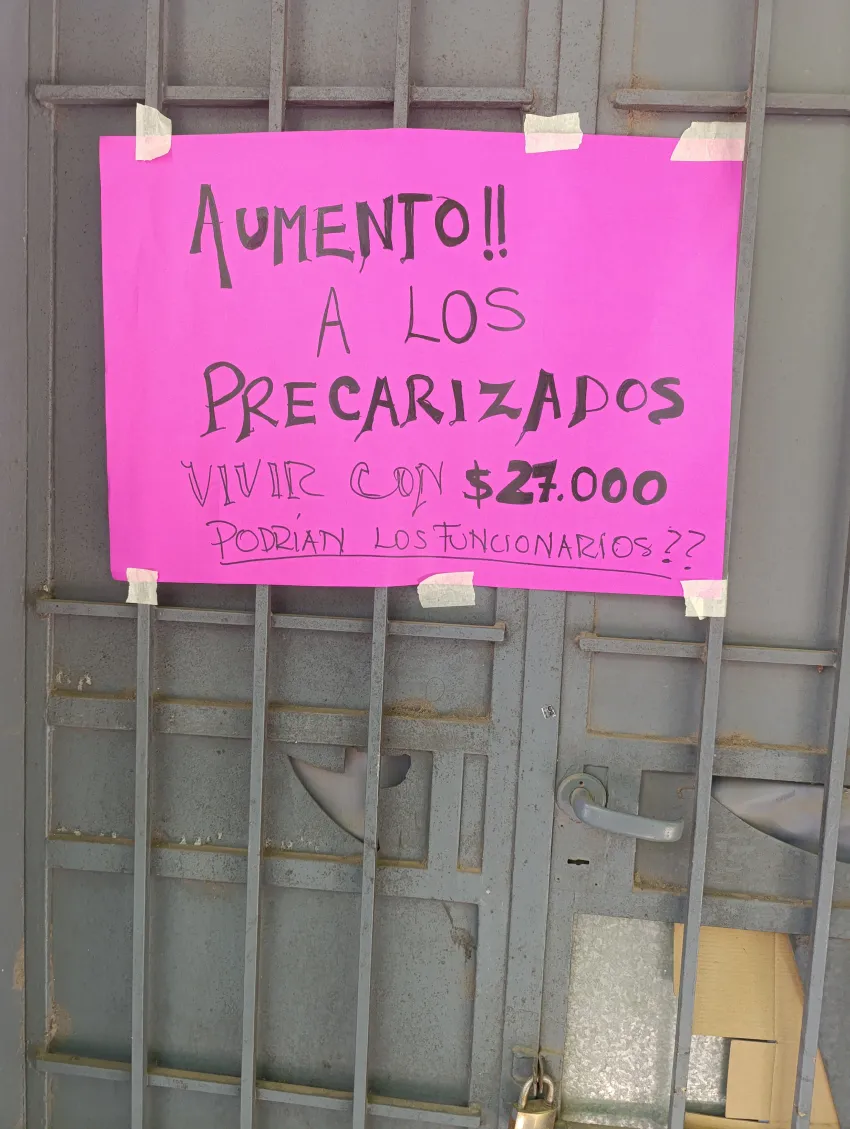 AUMENTO!!
A LOS
PRECARIZADOS
VIVIR CON $27.000
PODRÍAN LOS FUNCIONARIOS??